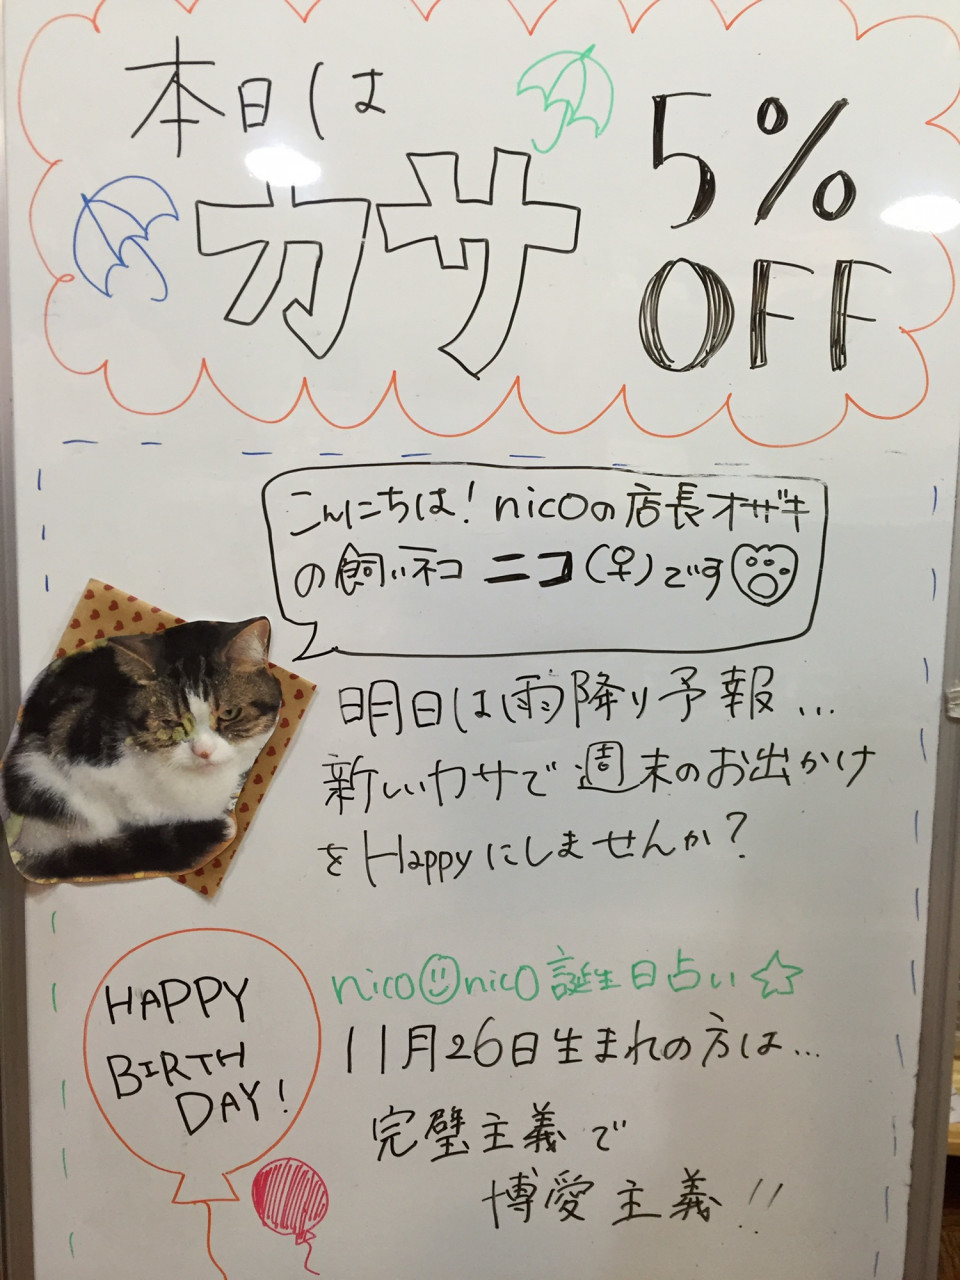 本日は
カサ
5%
OFF
こんにちは! nicoの店長オザキ
の飼いネコ ニコ(♀)です
明日は雨降り予報...
新しいカサで週末のお出かけ
をHappyにしませんか?
HAPPY
BIRTH
DAY!
nico nico 誕生日占い☆
11月26日生まれの方は...
完璧主義で
博愛主義!!